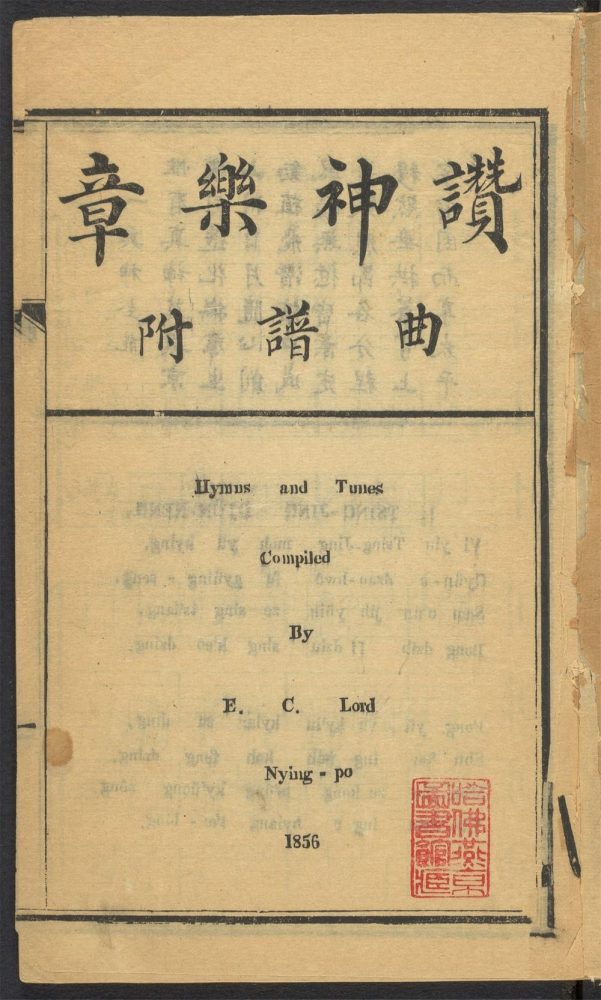 讚神樂章
曲譜附
Hymns and Tunes
Compiled
By
E. C. Lord
Nying-po
1856
哈佛燕京
圖書館藏